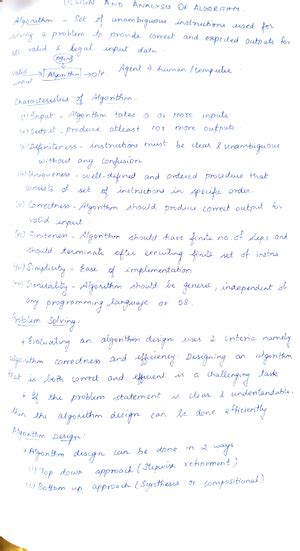 DESIGN AND ANALYSIS OF ALGORITHM.
Algorithm - Set of unambiguous instructions used for
solving a problem to provide correct and expected outputs for
all valid & legal input data.
Agent
valid input → Algorithm → O/P   Agent → human/computer
Characteristics of Algorithm.
(i) Input - Algorithm takes 0 or more inputs
(ii) Output - produce atleast 1 or more outputs
(iii) Definiteness - instructions must be clear & unambiguous
without any confusion
(iv) Uniqueness - well-defined and ordered procedure that
consists of set of instructions in specific order.
(v) Correctness - Algorithm should produce correct output for
valid input
(vi) Finiteness - Algorithm should have finite no. of steps and
should terminate after executing finite set of instns
(vii) Simplicity - Ease of implementation
(viii) Generality - Algorithm should be generic, independent of
any programming language or OS.
Problem Solving:
* Evaluating an algorithm design uses 2 criteria namely
algorithm correctness and efficiency. Designing an algorithm
that is both correct and efficient is a challenging task
* If the problem statement is clear & understandable,
then the algorithm design can be done efficiently
Algorithm Design:
* Algorithm design can be done in 2 ways
(i) Top down approach (Stepwise refinement)
(ii) Bottom up approach (Synthesis or compositional)